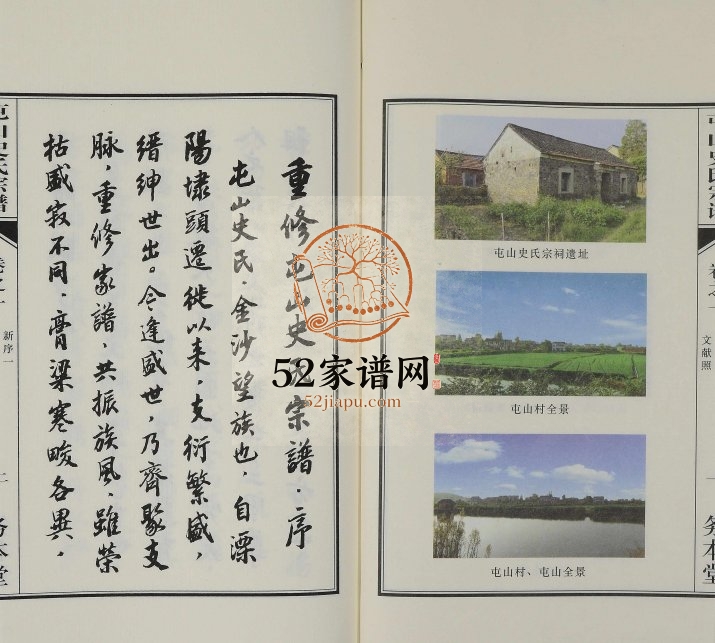 屯山史氏宗谱
卷之一
文献照
一
务本堂
屯山史氏宗祠遗址
屯山村全景
屯山村、屯山全景
重修屯山史氏宗譜·序
屯山史氏·金沙望族也，自溧
陽埭頭遷徙以来，支衍繁盛，
缙绅世出。今逢盛世，乃齊聚支
脉，重修家譜，共振族风，雖榮
枯盛寂不同，膏梁寒畯各異，
屯山史氏宗谱
卷之一
新序一
二
务本堂
52家谱网
52jiapu.com